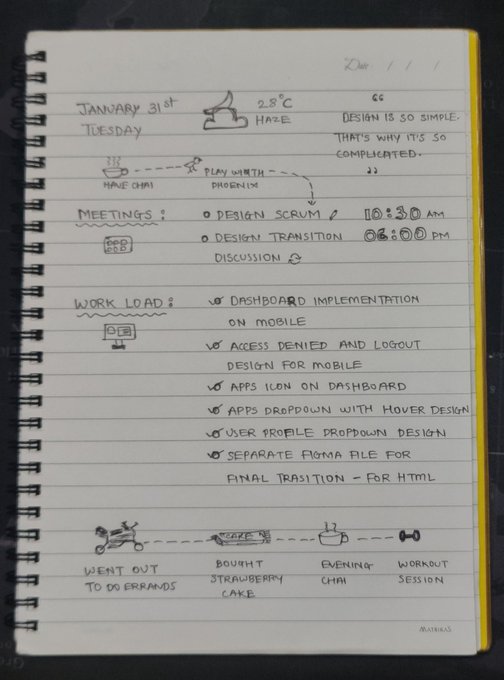 Date: / / /
JANUARY 31st
TUESDAY
28°C
HAZE
"
DESIGN IS SO SIMPLE.
THAT'S WHY IT'S SO
COMPLICATED.
"
HAVE CHAI
PLAY WITH
PHOENIX
MEETINGS:
DESIGN SCRUM 10:30 AM
DESIGN TRANSITION 06:00 PM
DISCUSSION
WORK LOAD:
DASHBOARD IMPLEMENTATION
ON MOBILE
ACCESS DENIED AND LOGOUT
DESIGN FOR MOBILE
APPS ICON ON DASHBOARD
APPS DROPDOWN WITH HOVER DESIGN
USER PROFILE DROPDOWN DESIGN
SEPARATE FIGMA FILE FOR
FINAL TRASITION - FOR HTML
CAKE
WENT OUT
TO DO ERRANDS
BOUGHT
STRAWBERRY
CAKE
EVENING
CHAI
WORKOUT
SESSION